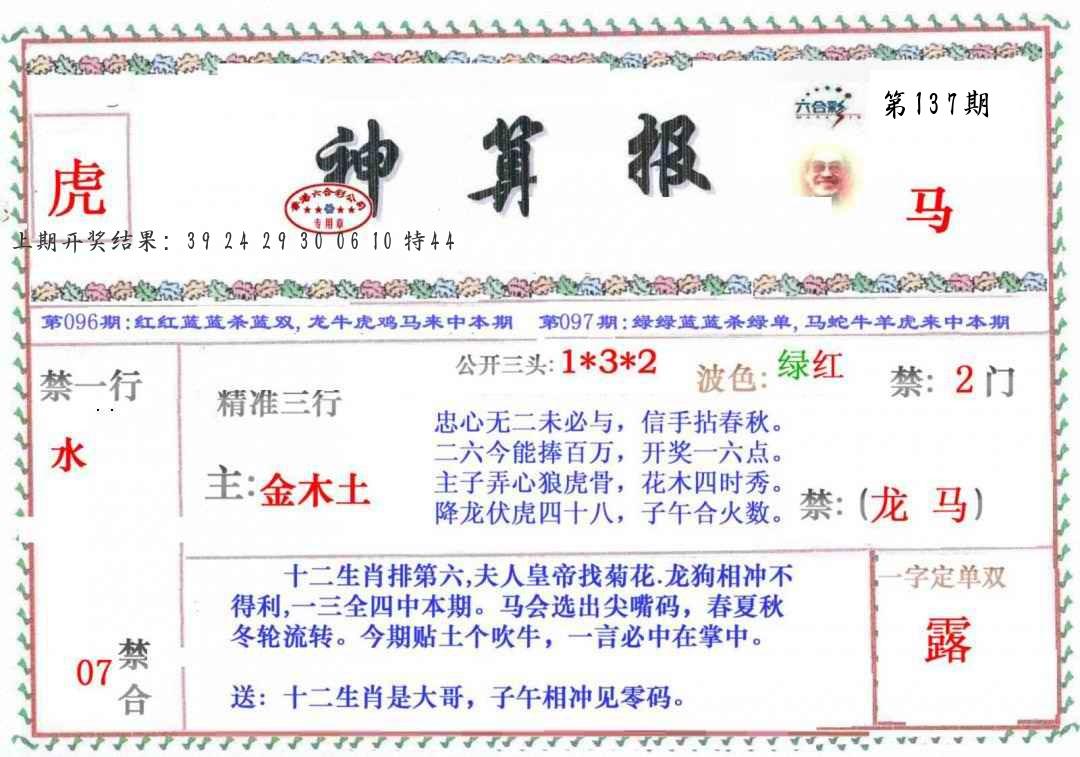 六合彩
第137期
虎
神算报
香港六合彩公司
专用章
马
上期开奖结果: 39 24 29 30 06 10 特44
第096期:红红蓝蓝杀蓝双,龙牛虎鸡马来中本期 第097期:绿绿蓝蓝杀绿单,马蛇牛羊虎来中本期
禁一行
水
精准三行
主:金木土
公开三头:1*3*2
波色:绿红
禁: 2门
忠心无二未必与，信手拈春秋。
二六今能捧百万，开奖一六点。
主子弄心狼虎骨，花木四时秀。
降龙伏虎四十八，子午合火数。
禁:(龙 马)
07
禁合
十二生肖排第六,夫人皇帝找菊花.龙狗相冲不
得利,一三全四中本期。马会选出尖嘴码，春夏秋
冬轮流转。今期贴土个吹牛，一言必中在掌中。
送：十二生肖是大哥，子午相冲见零码。
一字定单双
露